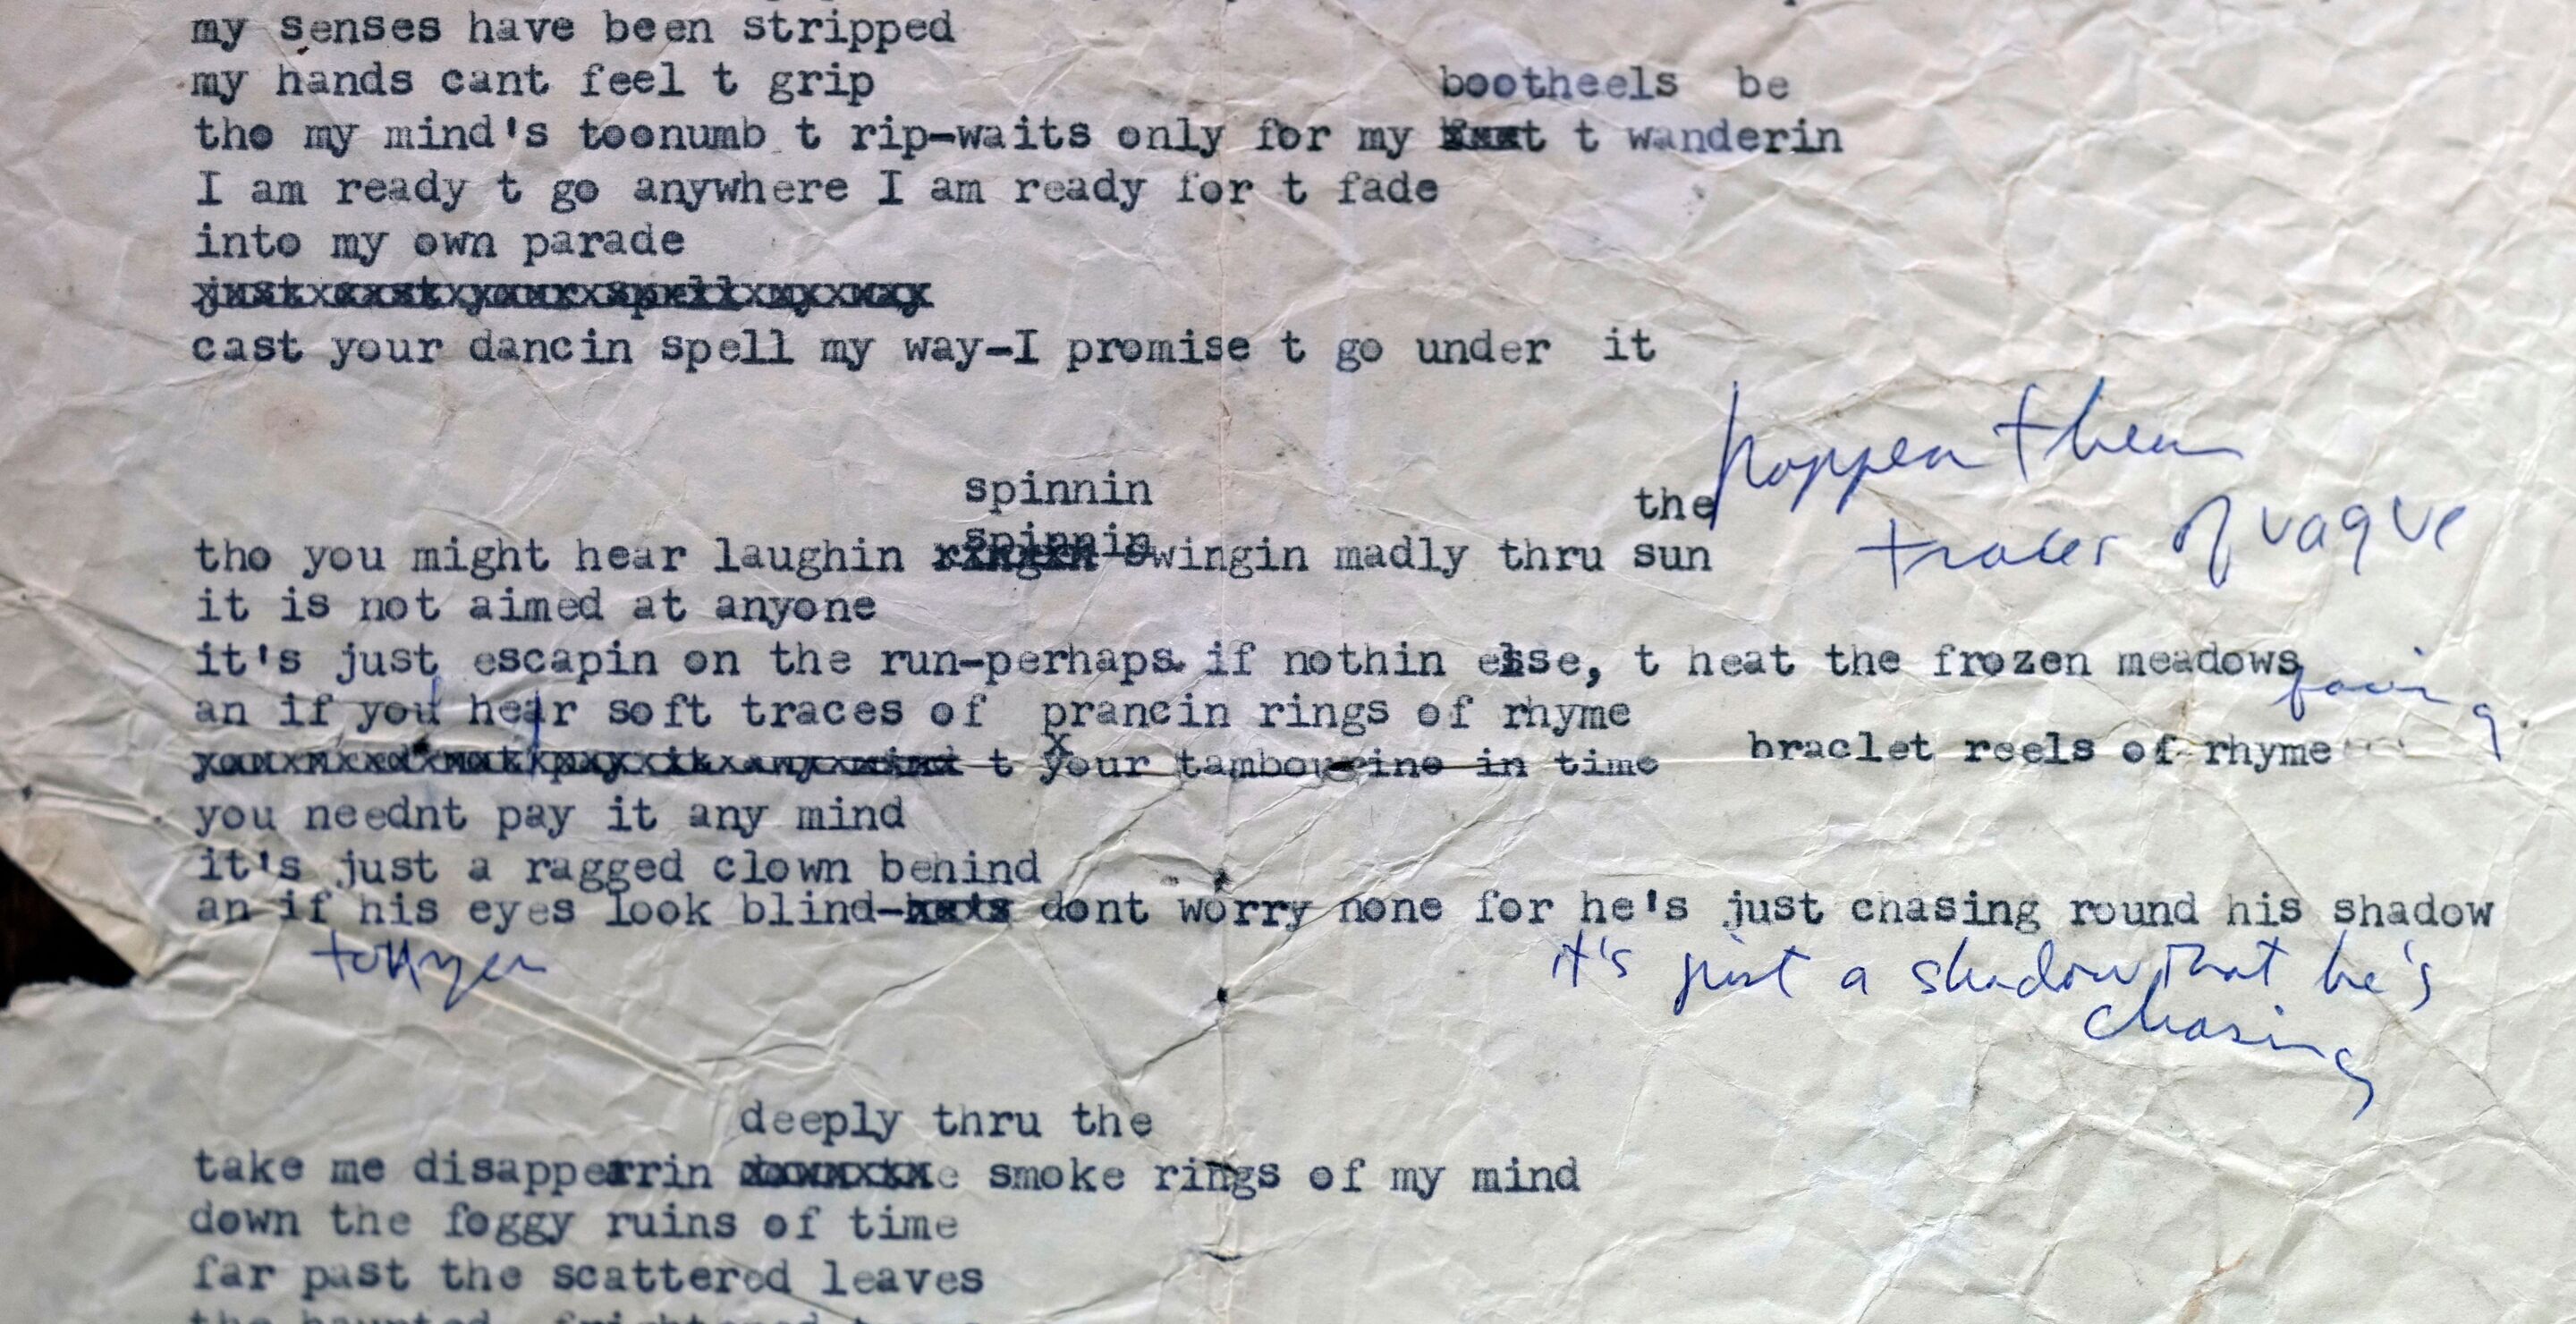 my senses have been stripped
my hands cant feel t grip
bootheels be
tho my mind's toonumb t rip-waits only for my t wanderin
I am ready t go anywhere I am ready for t fade
into my own parade
just cast your spell my way
cast your dancin spell my way-I promise t go under it
then
spinnin
the
traces of vague
spinnin
tho you might hear laughin ringin swingin madly thru sun
it is not aimed at anyone
it's just escapin on the run-perhaps if nothin else, t heat the frozen meadows
an if you hear soft traces of prancin rings of rhyme
braclet reels of rhyme
you need not pay it any mind t your tambourine in time
you neednt pay it any mind
it's just a ragged clown behind
an if his eyes look blind- dont worry none for he's just chasing round his shadow
it's just a shadow that he's
chasing
deeply thru the
take me disapperrin smoke rings of my mind
down the foggy ruins of time
far past the scattered leaves
the haunted, frightened